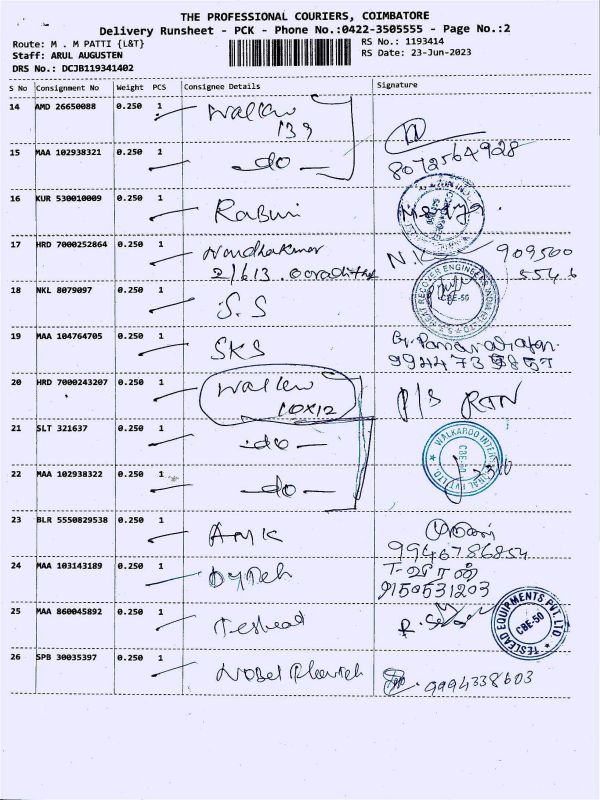 THE PROFESSIONAL COURIERS, COIMBATORE
Delivery Runsheet - PCK - Phone No.:0422-3505555 - Page No.:2
Route: M . M PATTI {L&T}
RS No.: 1193414
Staff: ARUL AUGUSTEN
RS Date: 23-Jun-2023
DRS No.: DCJB119341402
S No Consignment No Weight PCS Consignee Details Signature
14 AMD 26650088 0.250 1
139
15 MAA 102938321 0.250 1 - do -
8072564928
16 KUR 530010009 0.250 1
17 HRD 7000252864 0.250 1 Nandhakumar
909500
2/613
5546
HEAT RECOVER ENGINEERS INDIA
CBE-50
18 NKL 8079097 0.250 1 S.S
19 MAA 104764705 0.250 1 SKS
20 HRD 7000243207 0.250 1
10x12
P/S RTN
21 SLT 321637 0.250 1 - do -
WALKAROO INTERNATIONAL PVT LTD.
CBE-50
22 MAA 102938322 0.250 1 - do -
23 BLR 5550829538 0.250 1 AMK
9946786854
24 MAA 103143189 0.250 1
9150531203
25 MAA 860045892 0.250 1 Teslead
TESLEAD EQUIPMENTS PVT. LTD
CBE-50
26 SPB 30035397 0.250 1
9994338603